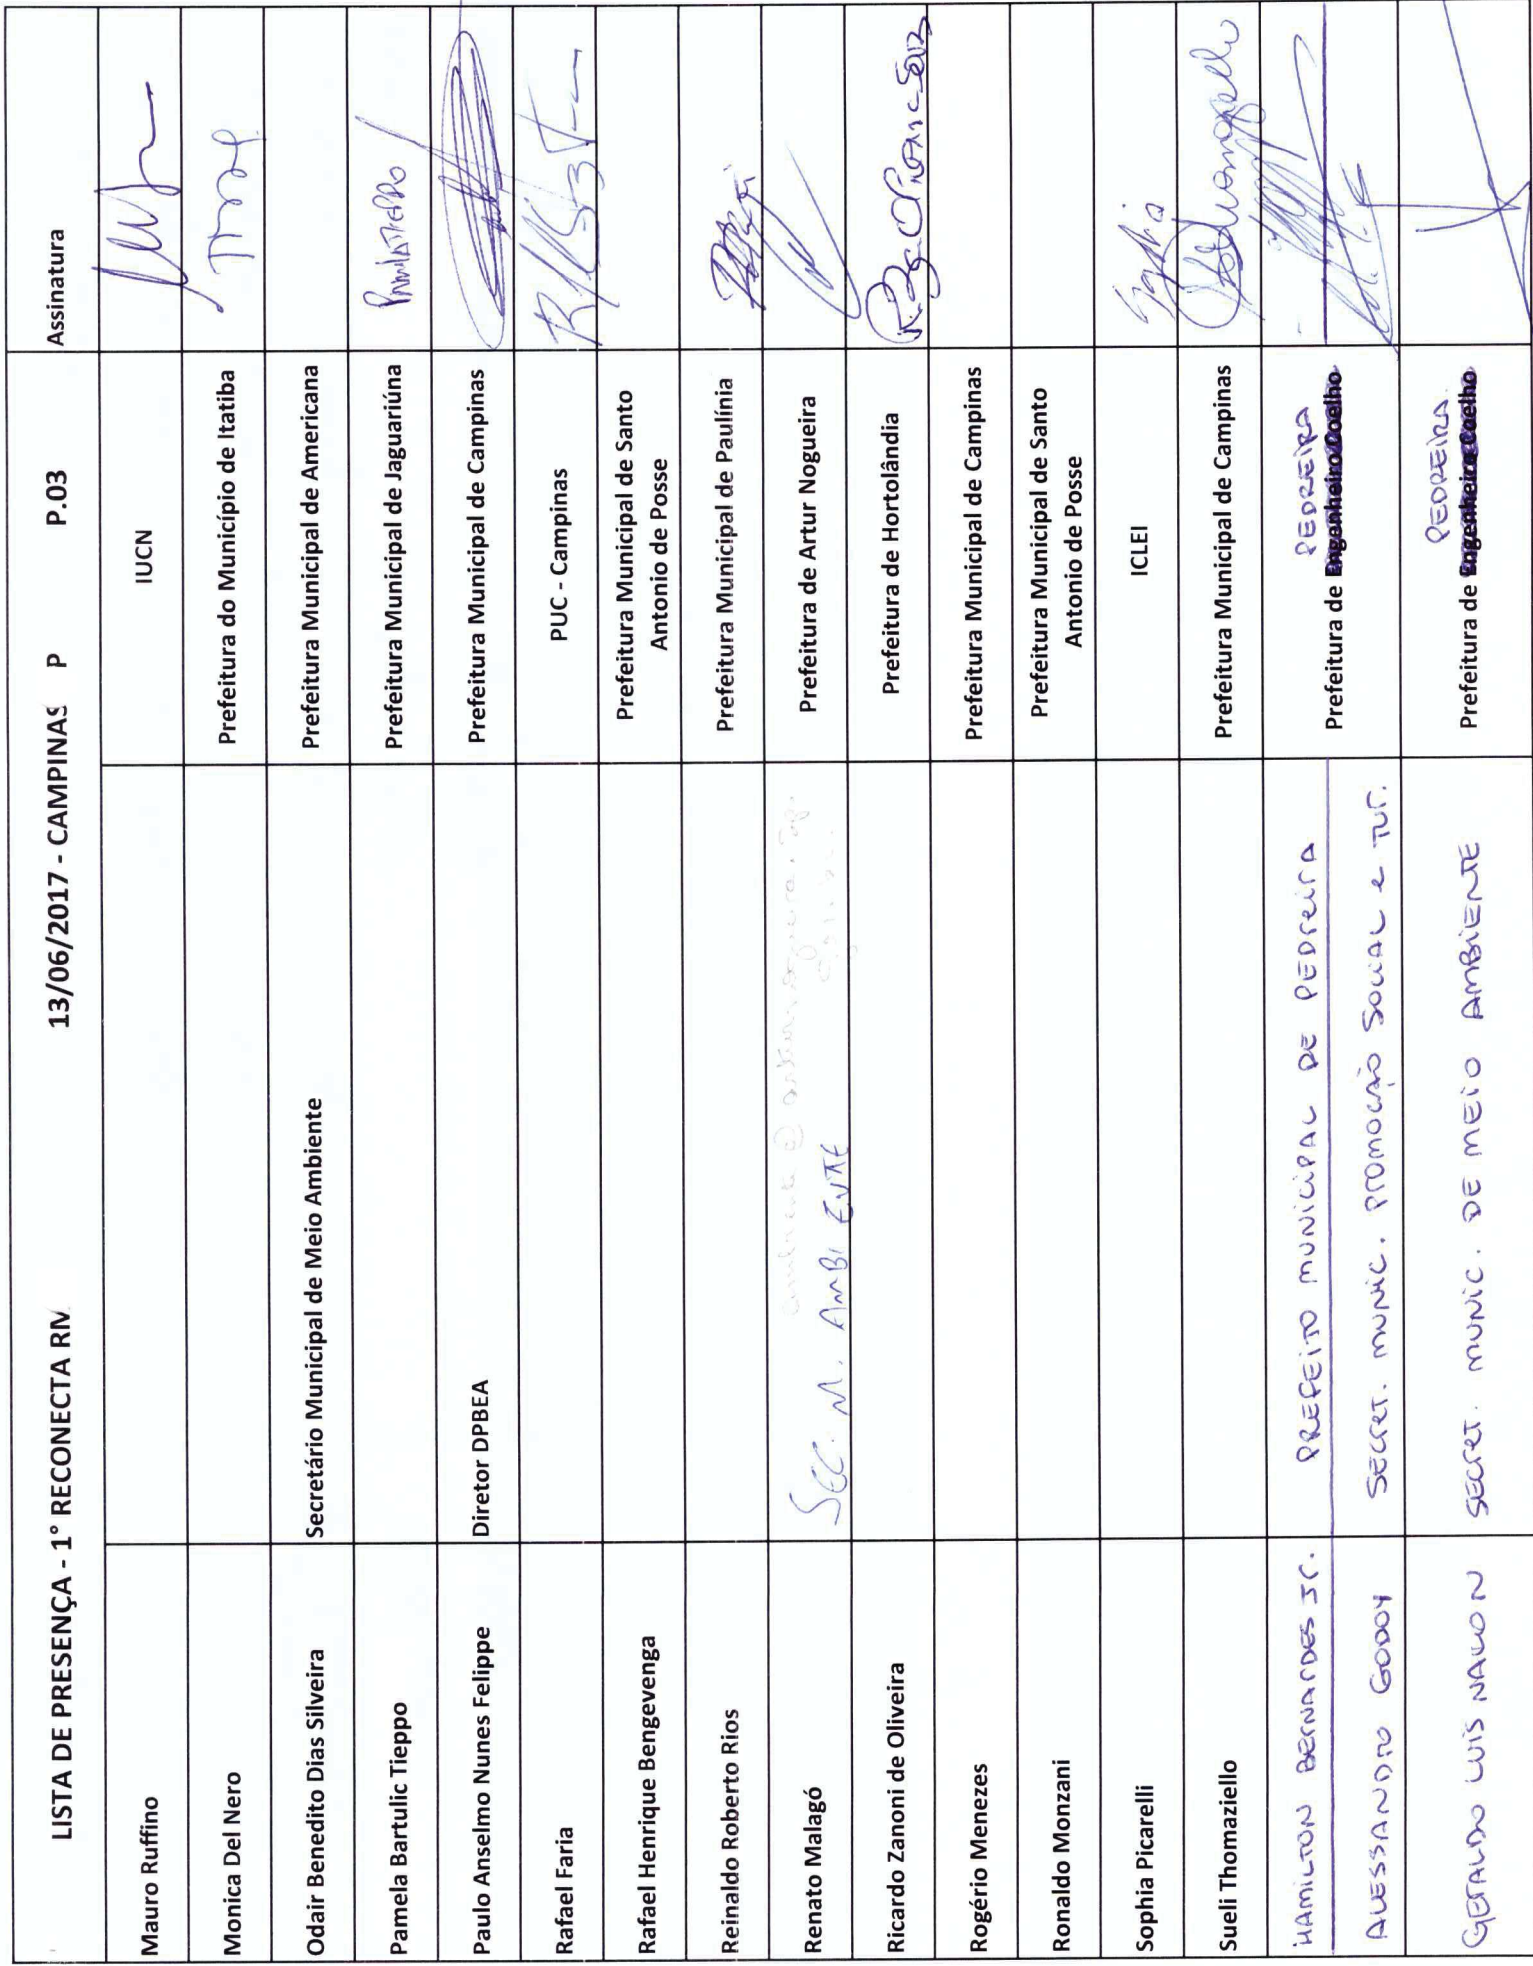 LISTA DE PRESENÇA - 1° RECONECTA RM 13/06/2017 - CAMPINAS P P.03 Assinatura
Mauro Ruffino IUCN
Monica Del Nero Prefeitura do Município de Itatiba
Odair Benedito Dias Silveira Secretário Municipal de Meio Ambiente Prefeitura Municipal de Americana
Pamela Bartulic Tieppo Prefeitura Municipal de Jaguariúna
Paulo Anselmo Nunes Felippe Diretor DPBEA Prefeitura Municipal de Campinas
Rafael Faria PUC - Campinas
Rafael Henrique Bengevenga Prefeitura Municipal de Santo
Antonio de Posse
Reinaldo Roberto Rios Prefeitura Municipal de Paulínia
Renato Malagó SEC. M. AMBIENTE Prefeitura de Artur Nogueira
Ricardo Zanoni de Oliveira Prefeitura de Hortolândia
Rogério Menezes Prefeitura Municipal de Campinas
Ronaldo Monzani Prefeitura Municipal de Santo
Antonio de Posse
Sophia Picarelli ICLEI
Sueli Thomaziello Prefeitura Municipal de Campinas
HAMILTON BERNARDES JR. PREFEITO MUNICIPAL DE PEDREIRA PEDREIRA
Prefeitura de Engenheiro Coelho
ALESSANDRO GODOY SECRET. MUNIC. PROMOÇÃO SOCIAL e TUR.
PEDREIRA
GERALDO LUIS NALON SECRET. MUNIC. DE MEIO AMBIENTE Prefeitura de Engenheiro Coelho